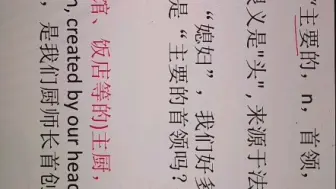 "主要的, n, 首领,
义是"头", 来源于法
"媳妇", 我们好多
是"主要的首领吗?
馆、饭店等的)主厨,
n, created by our head
, 是我们厨师长首创